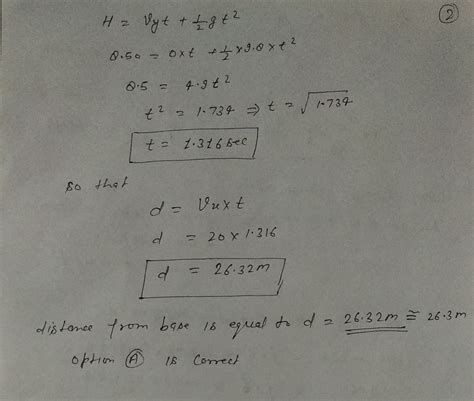 ②
H = Vyt + 1/2 gt²
8.50 = 0xt + 1/2 x9.8xt²
8.5 = 4.9t²
t² = 1.734 ⇒ t = √1.734
t = 1.316 sec
so that
d = Vuxt
d = 20 x 1.316
d = 26.32m
distance from base is equal to d = 26.32m ≅ 26.3m
option Ⓐ is correct